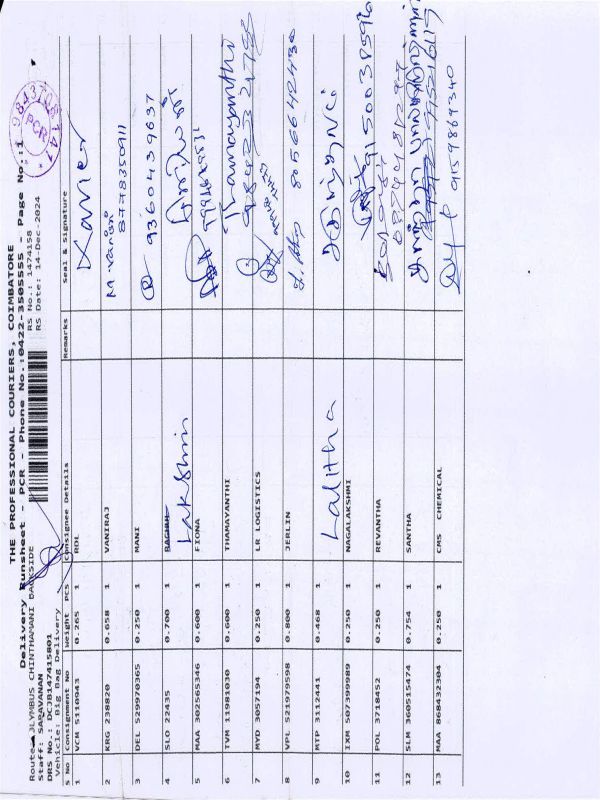 THE PROFESSIONAL COURIERS, COIMBATORE
Delivery Runsheet - PCR - Phone No.:0422-3505555 - Page No.:1
Route: OLYMBUS CHINTHAMANI BACKSIDE
RS No.: 1474158
Staff: SARAVANAN
RS Date: 14-Dec-2024
DRS No.: DCJB147415801
Vehicle: Big Bag Delivery
S No Consignment No Weight PCS Consignee Details Remarks Seal & Signature
1 VCM 5110943 0.265 1 RDL Xavier
2 KRG 238820 0.658 1 VANIRAJ M. வாணி 8778350911
3 DEL 529970365 0.250 1 MANI 9360439637
4 SLO 22435 0.700 1 Lakshmi
5 MAA 302565346 0.600 1 FIONA
6 TVM 11981030 0.600 1 THAMAYANTHI Thamayanthi
7 MYD 3057194 0.250 1 LR LOGISTICS
8 VPL 521979598 0.800 1 JERLIN 8056642430
9 MTP 3112441 0.468 1 Lalitha
10 IXM 507399989 0.250 1 NAGALAKSHMI 9150038596
11 POL 3718452 0.250 1 REVANTHA
12 SLM 360515474 0.754 1 SANTHA
13 MAA 868432304 0.250 1 CMS CHEMICAL 9159869340
PCR